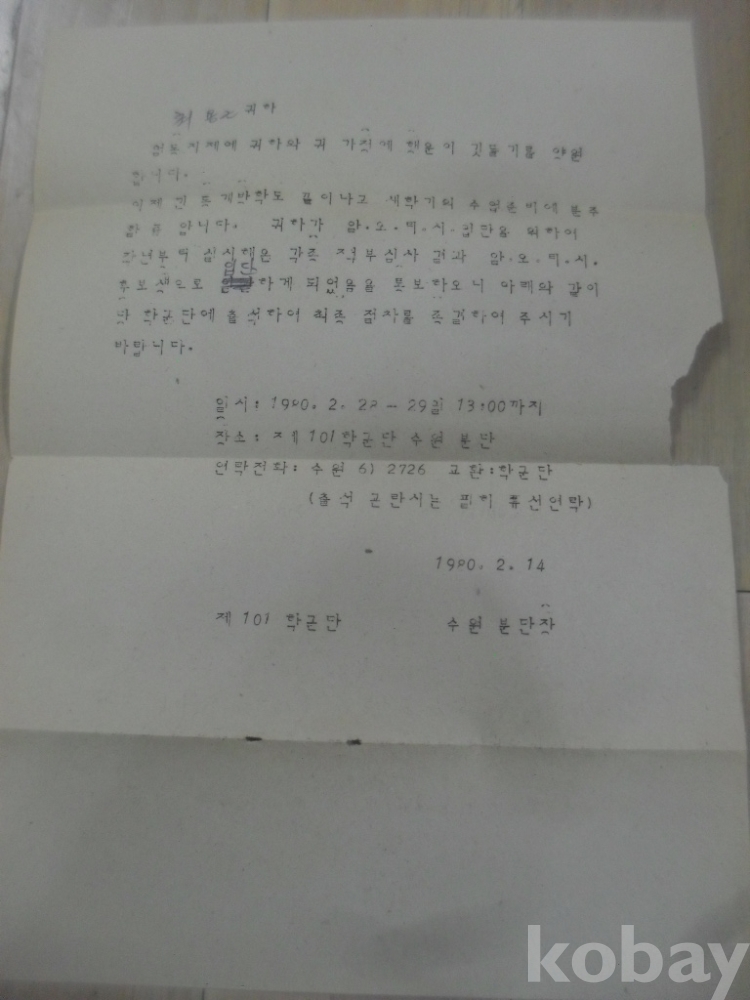 귀하
귀하와 귀 가정에 행운이 깃들기를 앙원
합니다.
이제 긴 동계방학도 끝이나고 새학기의 수업준비에 분주
할줄 압니다. 귀하가 알.오.티.시.입단을 위하여
작년부터 실시해온 각종 적부심사 결과 알.오.티.시.
후보생으로 입단하게 되었음을 통보하오니 아래와 같이
학군단에 출석하여 최종 절차를 종결하여 주시기
바랍니다.
일시: 1980. 2. 28 - 29일 13:00까지
장소: 제 101학군단 수원 분단
연락전화: 수원 6) 2726 교환:학군단
(출석 곤란시는 필히 유선연락)
1980. 2. 14
제 101 학군단 수원 분단장
kobay